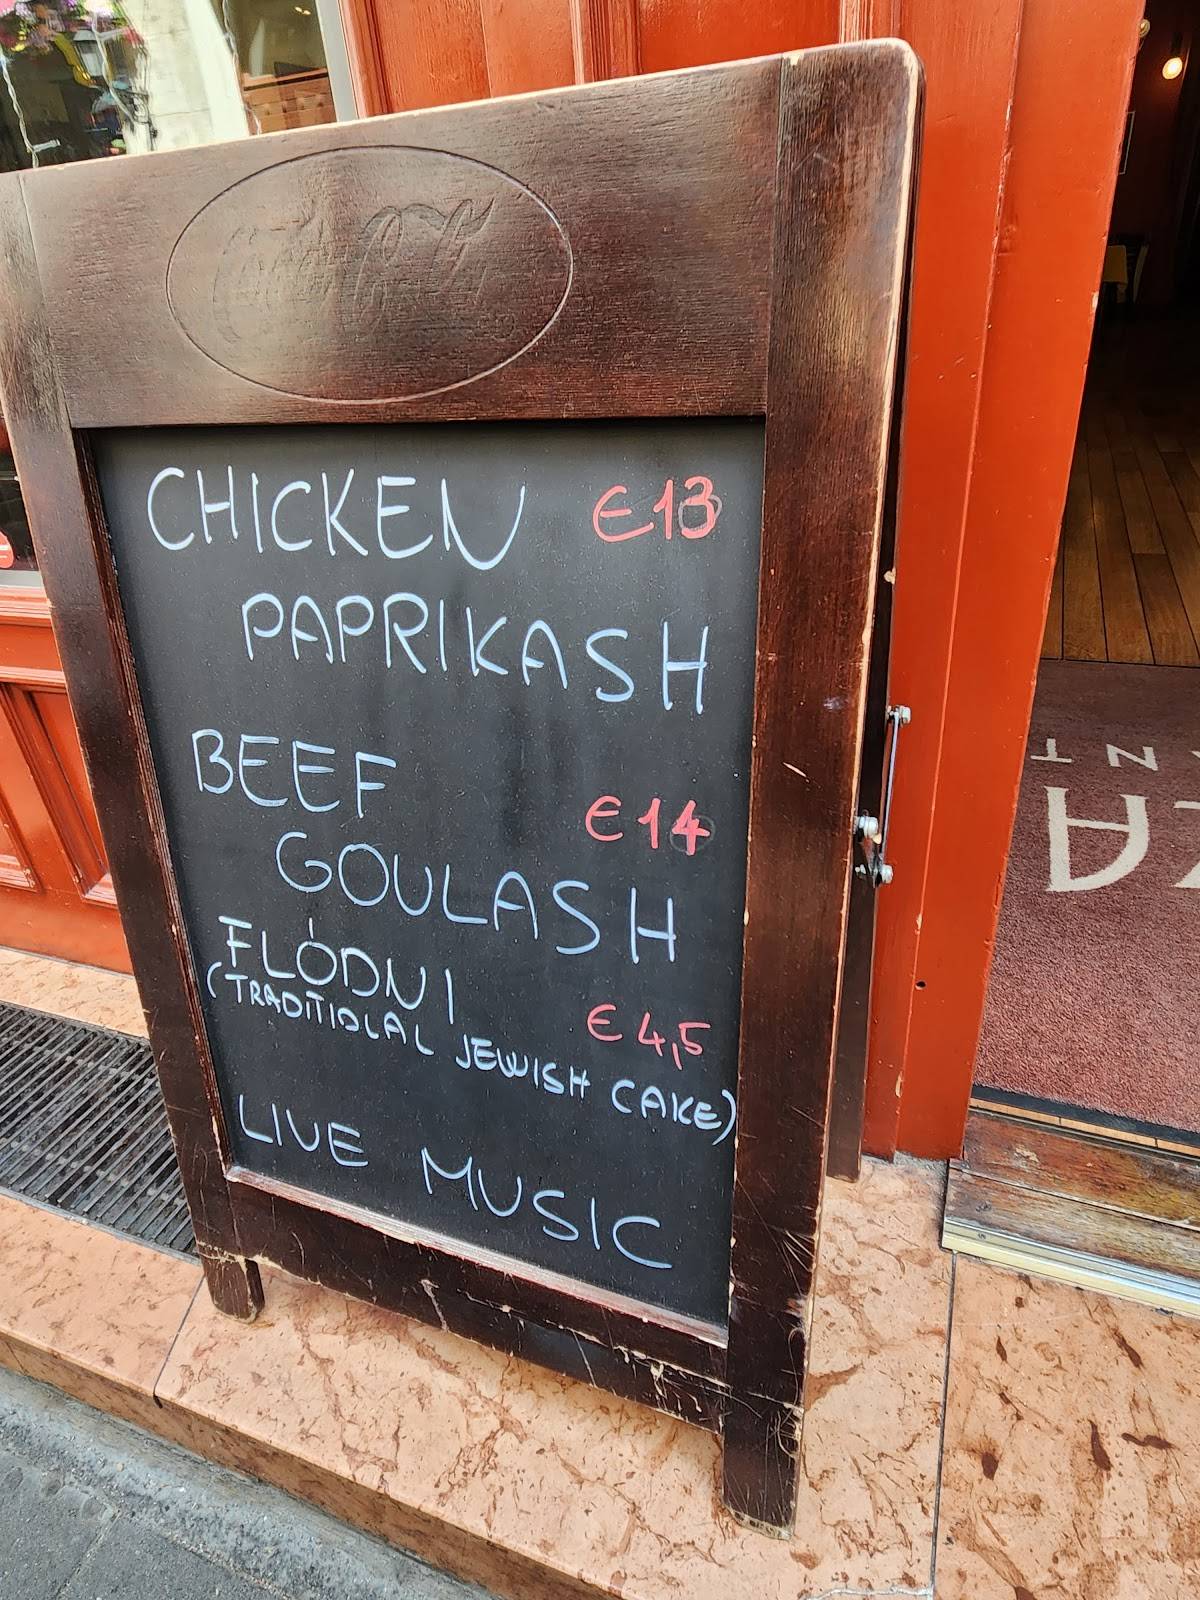 Coca-Cola
CHICKEN €13
PAPRIKASH
BEEF
€14
GOULASH
FLÓDNI
(TRADITIOLAL JEWISH CAKE)
€4,5
LIVE MUSIC